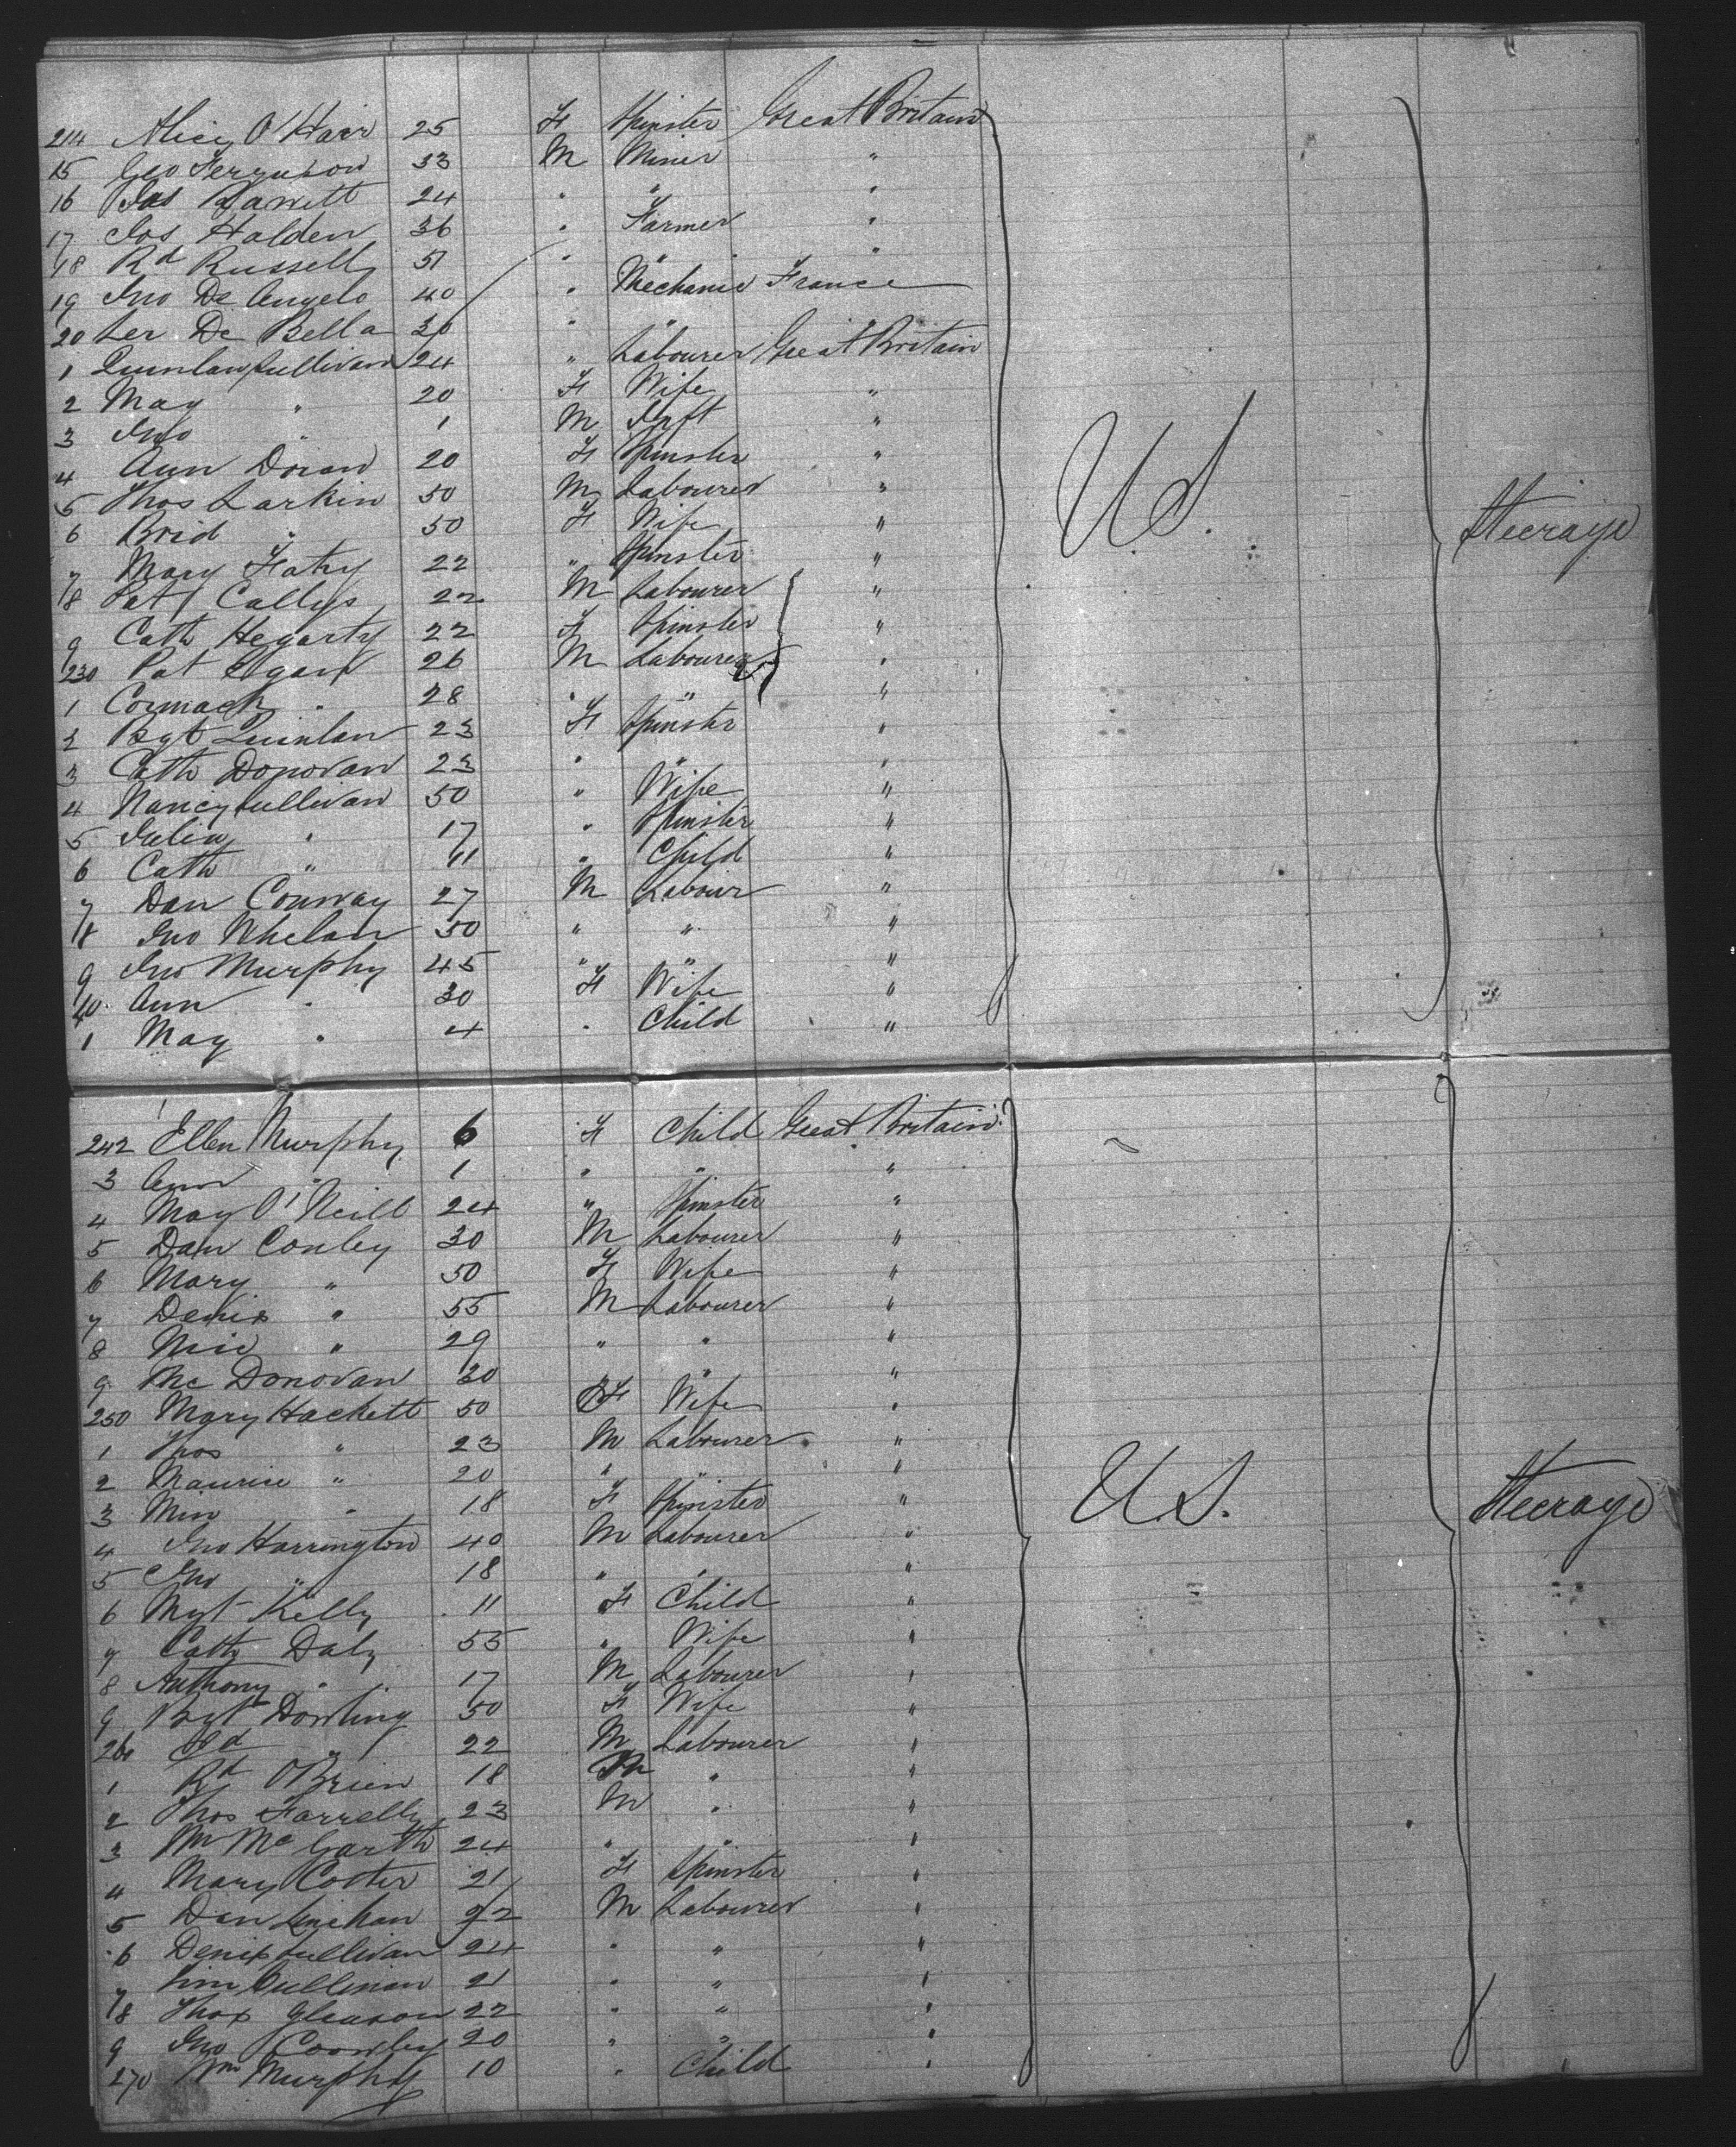 214 Alicy O'Harr 25 F Spinster Great Britain
15 Geo Ferguson 33 M Miner "
16 Jas 24 " " "
17 Jos Halden 36 " Farmer "
18 Rd Russell 51 " " "
19 Jno De Angelo 40 " Mechanic France
20 Ler De Bella 30 " "
1 Quinlan Sullivan 24 " Labourer Great Britain
2 May " 20 F Wife "
3 Jno " 1 M Inft "
4 Ann Doran 20 F Spinster "
5 Thos Larkin 50 M Labourer "
6 Brid " 50 F Wife "
7 Mary Fahy 22 " Spinster "
8 Pat Callys 22 M Labourer "
9 Cath Hegarty 22 F Spinster "
230 Pat Egan 26 M Labourer "
1 Cormack " 28 " " "
2 Bgt Quinlan 23 F Spinster "
3 Cath Donovan 23 " " "
4 Nancy Sullivan 50 " Wife "
5 Julia " 17 " Spinster "
6 Cath " 11 " Child "
7 Dan Conway 27 M Labour "
8 Jno Whelan 50 " " "
9 Jno Murphy 45 " " "
40 Ann " 30 F Wife "
1 May " 4 " Child "
U.S. Steerage
242 Ellen Murphy 6 F Child Great Britain
3 Ann " 1 " " "
4 May O'Neill 24 " Spinster "
5 Dan Conley 30 M Labourer "
6 Mary " 50 F Wife "
7 Denis " 55 M Labourer "
8 " 29 " " "
9 Mc Donovan 30 " " "
250 Mary Hackett 50 F Wife "
1 Thos " 23 M Labourer "
2 Maurice " 20 " " "
3 Min " 18 F Spinster "
4 Jno Harrington 40 M Labourer "
5 Jno " 18 " " "
6 Mgt Kelly 11 F Child "
7 Cath Daly 55 " Wife "
8 Anthony " 17 M Labourer "
9 Bgt Dowling 50 F Wife "
260 Ed " 22 M Labourer "
1 Rd O'Brien 18 M " "
2 Thos Farrelly 23 M " "
3 Wm McGarth 24 " " "
4 Mary Cotter 21 F Spinster "
5 Dan Linehan 22 M Labourer "
6 Denis Sullivan 24 " " "
7 Tim Cullinan 21 " " "
8 Thos Gleason 22 " " "
9 Jno Crowley 20 " " "
270 Wm Murphy 10 " Child "
U.S. Steerage